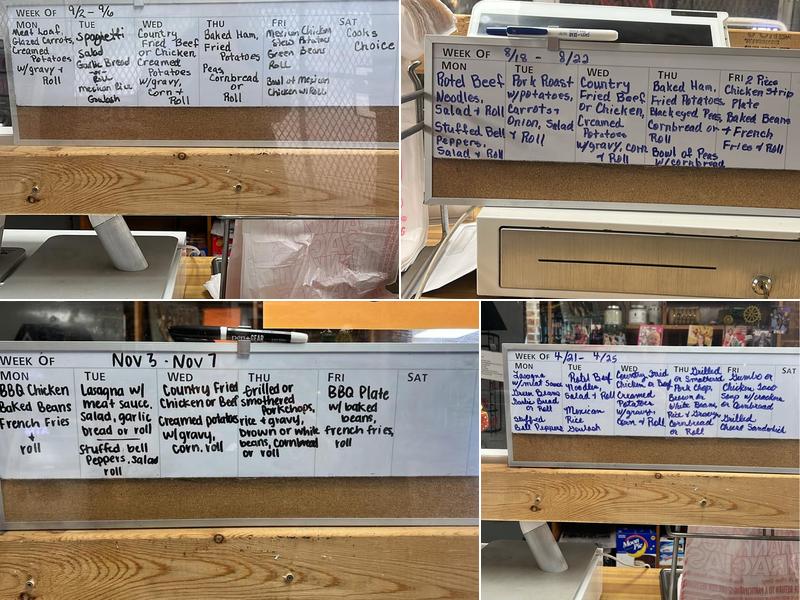 WEEK OF 9/2 - 9/6
MON
Meat Loaf,
Glazed Carrots,
Creamed
Potatoes
w/gravy +
Roll
TUE
Spaghetti
Salad
Garlic Bread
or
Roll
Mexican Rice
Goulash
WED
Country
Fried Beef
or Chicken,
Creamed
Potatoes
w/gravy,
Corn +
Roll
THU
Baked Ham,
Fried
Potatoes
Peas,
Cornbread
or
Roll
FRI
Mexican Chicken
Stew Potatoes
Green Beans
Roll
Bowl of Mexican
Chicken w/Roll
SAT
Cooks
Choice
WEEK OF 8/18 - 8/22
MON
Rotel Beef
Noodles,
Salad + Roll
Stuffed Bell
Peppers,
Salad + Roll
TUE
Pork Roast
w/potatoes,
Carrots +
Onion, Salad
+ Roll
WED
Country
Fried Beef
or Chicken,
Creamed
Potatoes
w/gravy, corn
+ Roll
THU
Baked Ham,
Fried Potatoes
Blackeyed Peas,
Cornbread or
Roll
Bowl of Peas
w/cornbread
FRI 2 Piece
Chicken Strip
Plate
Baked Beans
+ French
Fries + Roll
PEN+GEAR
WEEK OF Nov 3 - Nov 7
MON
BBQ Chicken
Baked Beans
French Fries
+
roll
TUE
Lasagna w/
meat sauce,
salad, garlic
bread or roll
stuffed bell
Peppers, salad
roll
WED
Country Fried
Chicken or Beef
creamed potatoes
w/gravy,
corn, roll
THU
Grilled or
smothered
Porkchops,
rice + gravy,
brown or white
beans, cornbread
or roll
FRI
BBQ Plate
w/ baked
beans,
french fries,
roll
SAT
WEEK OF 4/21 - 4/25
MON
Lasagna
w/meat sauce
Green Beans
Garlic Bread
or Roll
Stuffed
Bell Peppers
TUE
Rotel Beef
Noodles,
Salad + Roll
Mexican
Rice
Goulash
WED
Country Fried
Chicken or Beef
Creamed
Potatoes
w/gravy,
Corn + Roll
THU Grilled
or Smothered
Pork Chop,
Brown or
White Beans
Rice + Gravy
Cornbread
or Roll
FRI
Gumbo or
Chicken Taco
Soup w/crackers
or Cornbread
Grilled
Cheese Sandwich
SAT
Moon
Pie